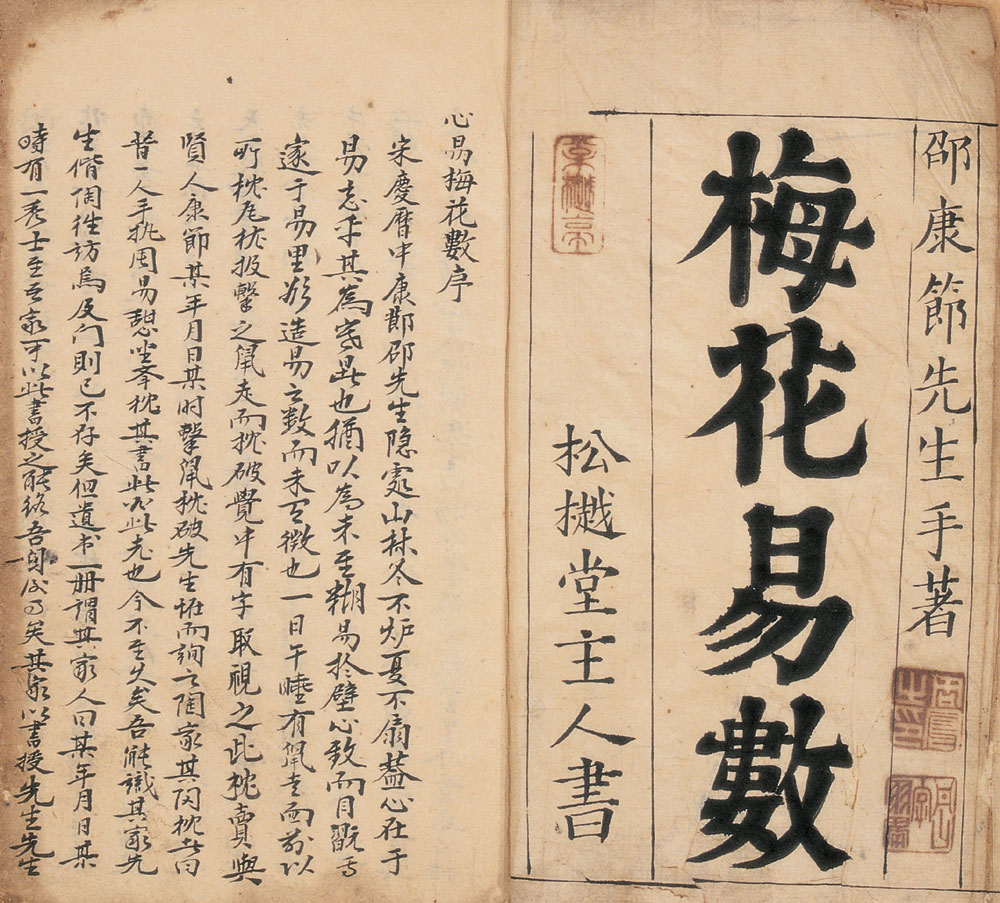 邵康節先生手著
梅花易數
松樾堂主人書
心易梅花數序
宋慶曆中康節邵先生隱處山林冬不炉夏不扇蓋心在于
易忘乎其為寒暑也猶以為未至糊易於壁心致而目翫焉
邃于易里欲造易之數而未有徵也一日午睡有鼠走而前以
所枕瓦枕投擊之鼠走而枕破覺中有字取視之此枕賣與
賢人康節某年月日某时擊鼠枕破先生怪而詢之陶家其陶枕者曰
昔一人手执周易憩坐举枕其書此必此先也今不至久矣吾能識其家先
生偕陶往訪焉及门則已不存矣但遺书一册謂其家人曰某年月日某
時有一秀士至吾家可以此書授之能終吾身后事矣其家以書授先生先生